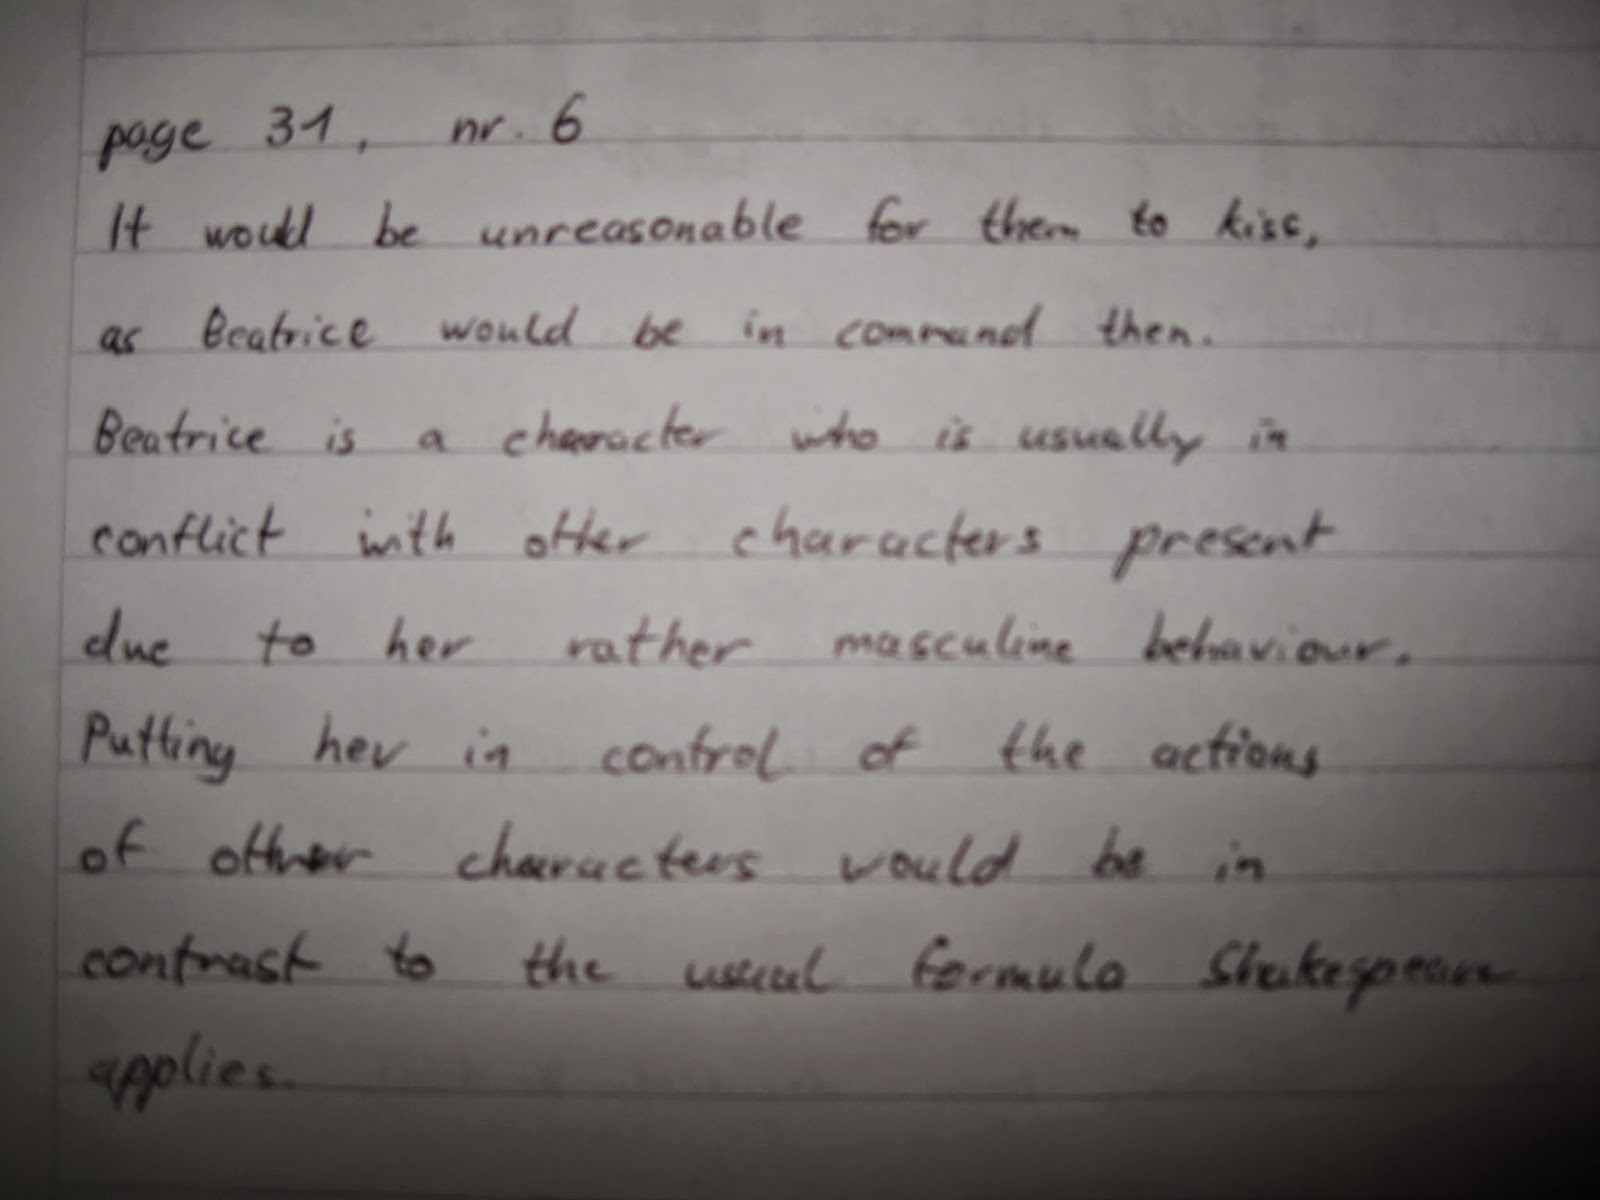 page 31, nr. 6
It would be unreasonable for them to kiss,
as Beatrice would be in command then.
Beatrice is a character who is usually in
conflict with other characters present
due to her rather masculine behaviour.
Putting her in control of the actions
of other characters would be in
contrast to the usual formula Shakespeare
applies.